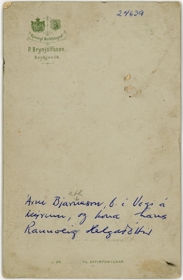 24639
P. Brynjólfsson
Reykjavík
Árni Bjarnason, b. í Vogi á
Mýrum, og kona hans
Rannveig Helgadóttir